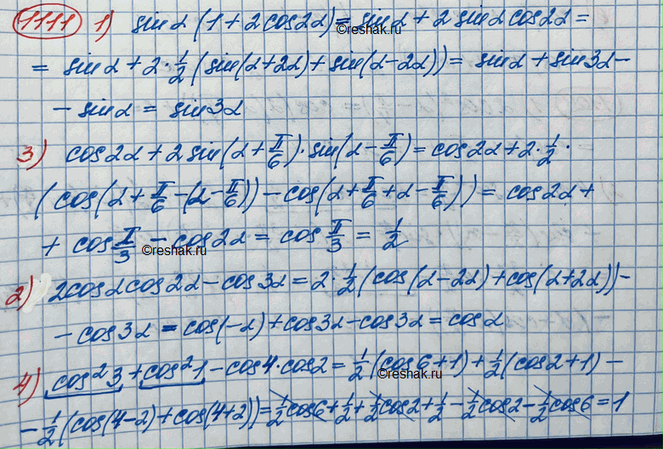 1111 1) sinα(1+2cos2α) = sinα + 2 sinα cos2α =
= sinα + 2·1/2 (sin(α+2α) + sin(α-2α)) = sinα + sin3α -
- sinα = sin3α
3) cos2α + 2 sin(α+π/6)·sin(α-π/6) = cos2α + 2·1/2·
(cos(α+π/6-(α-π/6)) - cos(α+π/6+α-π/6)) = cos2α +
+ cos π/3 - cos2α = cos π/3 = 1/2
2) 2cosα cos2α - cos3α = 2·1/2 (cos(α-2α) + cos(α+2α)) -
- cos3α = cos(-α) + cos3α - cos3α = cosα
4) cos²3 + cos²1 - cos4·cos2 = 1/2(cos6+1) + 1/2(cos2+1) -
- 1/2(cos(4-2) + cos(4+2)) = 1/2cos6 + 1/2 + 1/2cos2 + 1/2 - 1/2cos2 - 1/2cos6 = 1
©reshak.ru
©reshak.ru
©reshak.ru